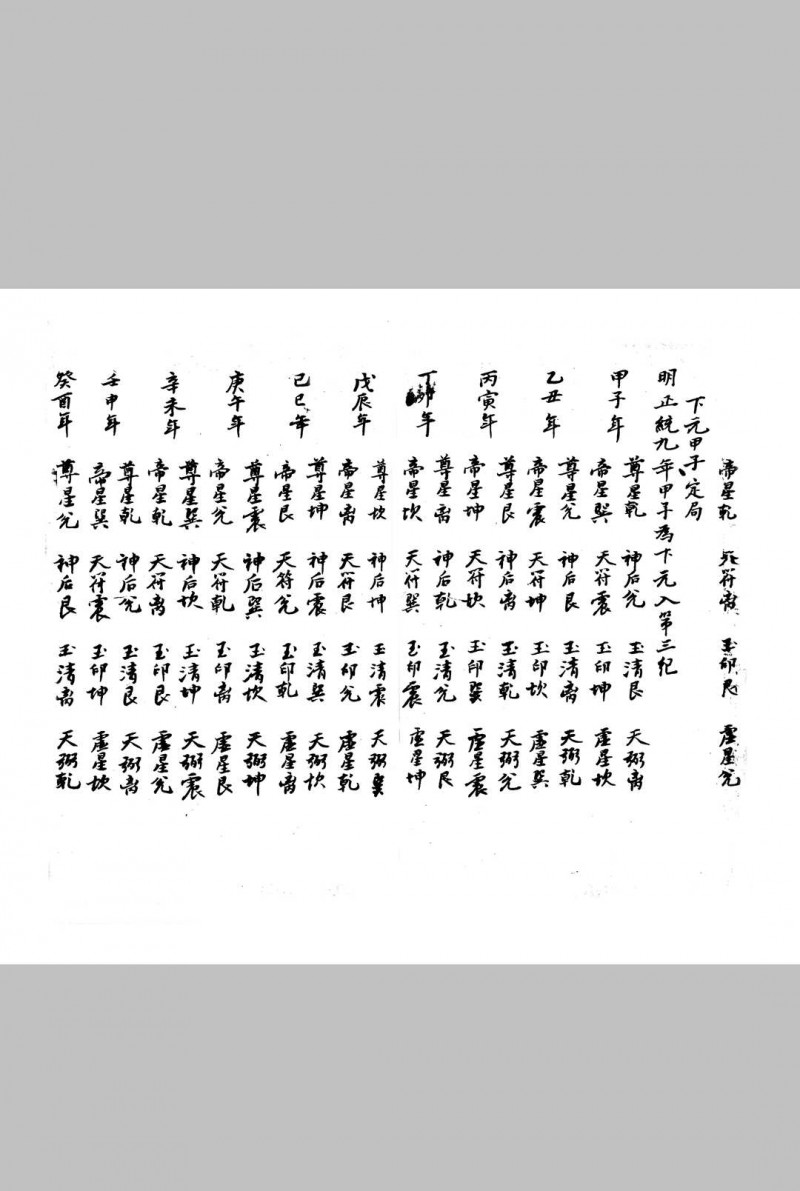 帝星乾 天符离 玉印艮 虚星兑
下元甲子定局
明正統九年甲子為下元入第三紀
甲子年
尊星乾 神后兑 玉清艮 天弼离
帝星巽 天符震 玉印坤 虚星坎
乙丑年
尊星兑 神后艮 玉清离 天弼乾
帝星震 天符坤 玉印坎 虚星巽
丙寅年
尊星艮 神后离 玉清乾 天弼兑
帝星坤 天符坎 玉印巽 虚星震
丁卯年
尊星离 神后乾 玉清兑 天弼艮
帝星坎 天符巽 玉印震 虚星坤
戊辰年
尊星坎 神后坤 玉清震 天弼巽
帝星离 天符艮 玉印兑 虚星乾
己巳年
尊星坤 神后震 玉清巽 天弼坎
帝星艮 天符兑 玉印乾 虚星离
庚午年
尊星震 神后巽 玉清坎 天弼坤
帝星兑 天符乾 玉印离 虚星艮
辛未年
尊星巽 神后坎 玉清坤 天弼震
帝星乾 天符离 玉印艮 虚星兑
壬申年
尊星乾 神后兑 玉清艮 天弼离
帝星巽 天符震 玉印坤 虚星坎
癸酉年
尊星兑 神后艮 玉清离 天弼乾